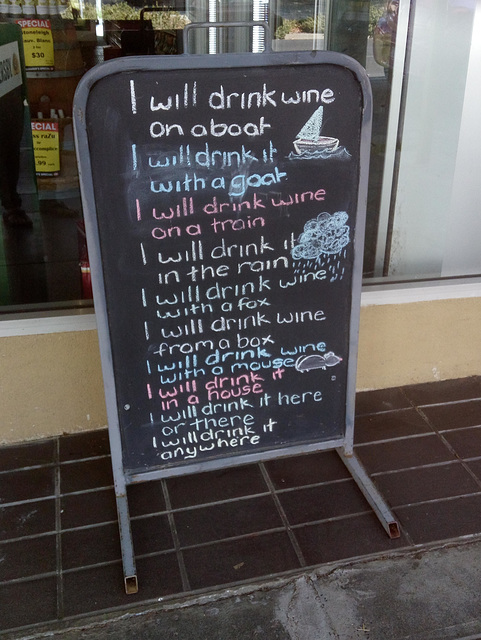 SPECIAL
$30
I will drink wine
on a boat
I will drink it
with a goat
I will drink wine
on a train
I will drink it
in the rain
I will drink wine
with a fox
I will drink wine
from a box
I will drink wine
with a mouse
I will drink it
in a house
I will drink it here
or there
I will drink it
anywhere